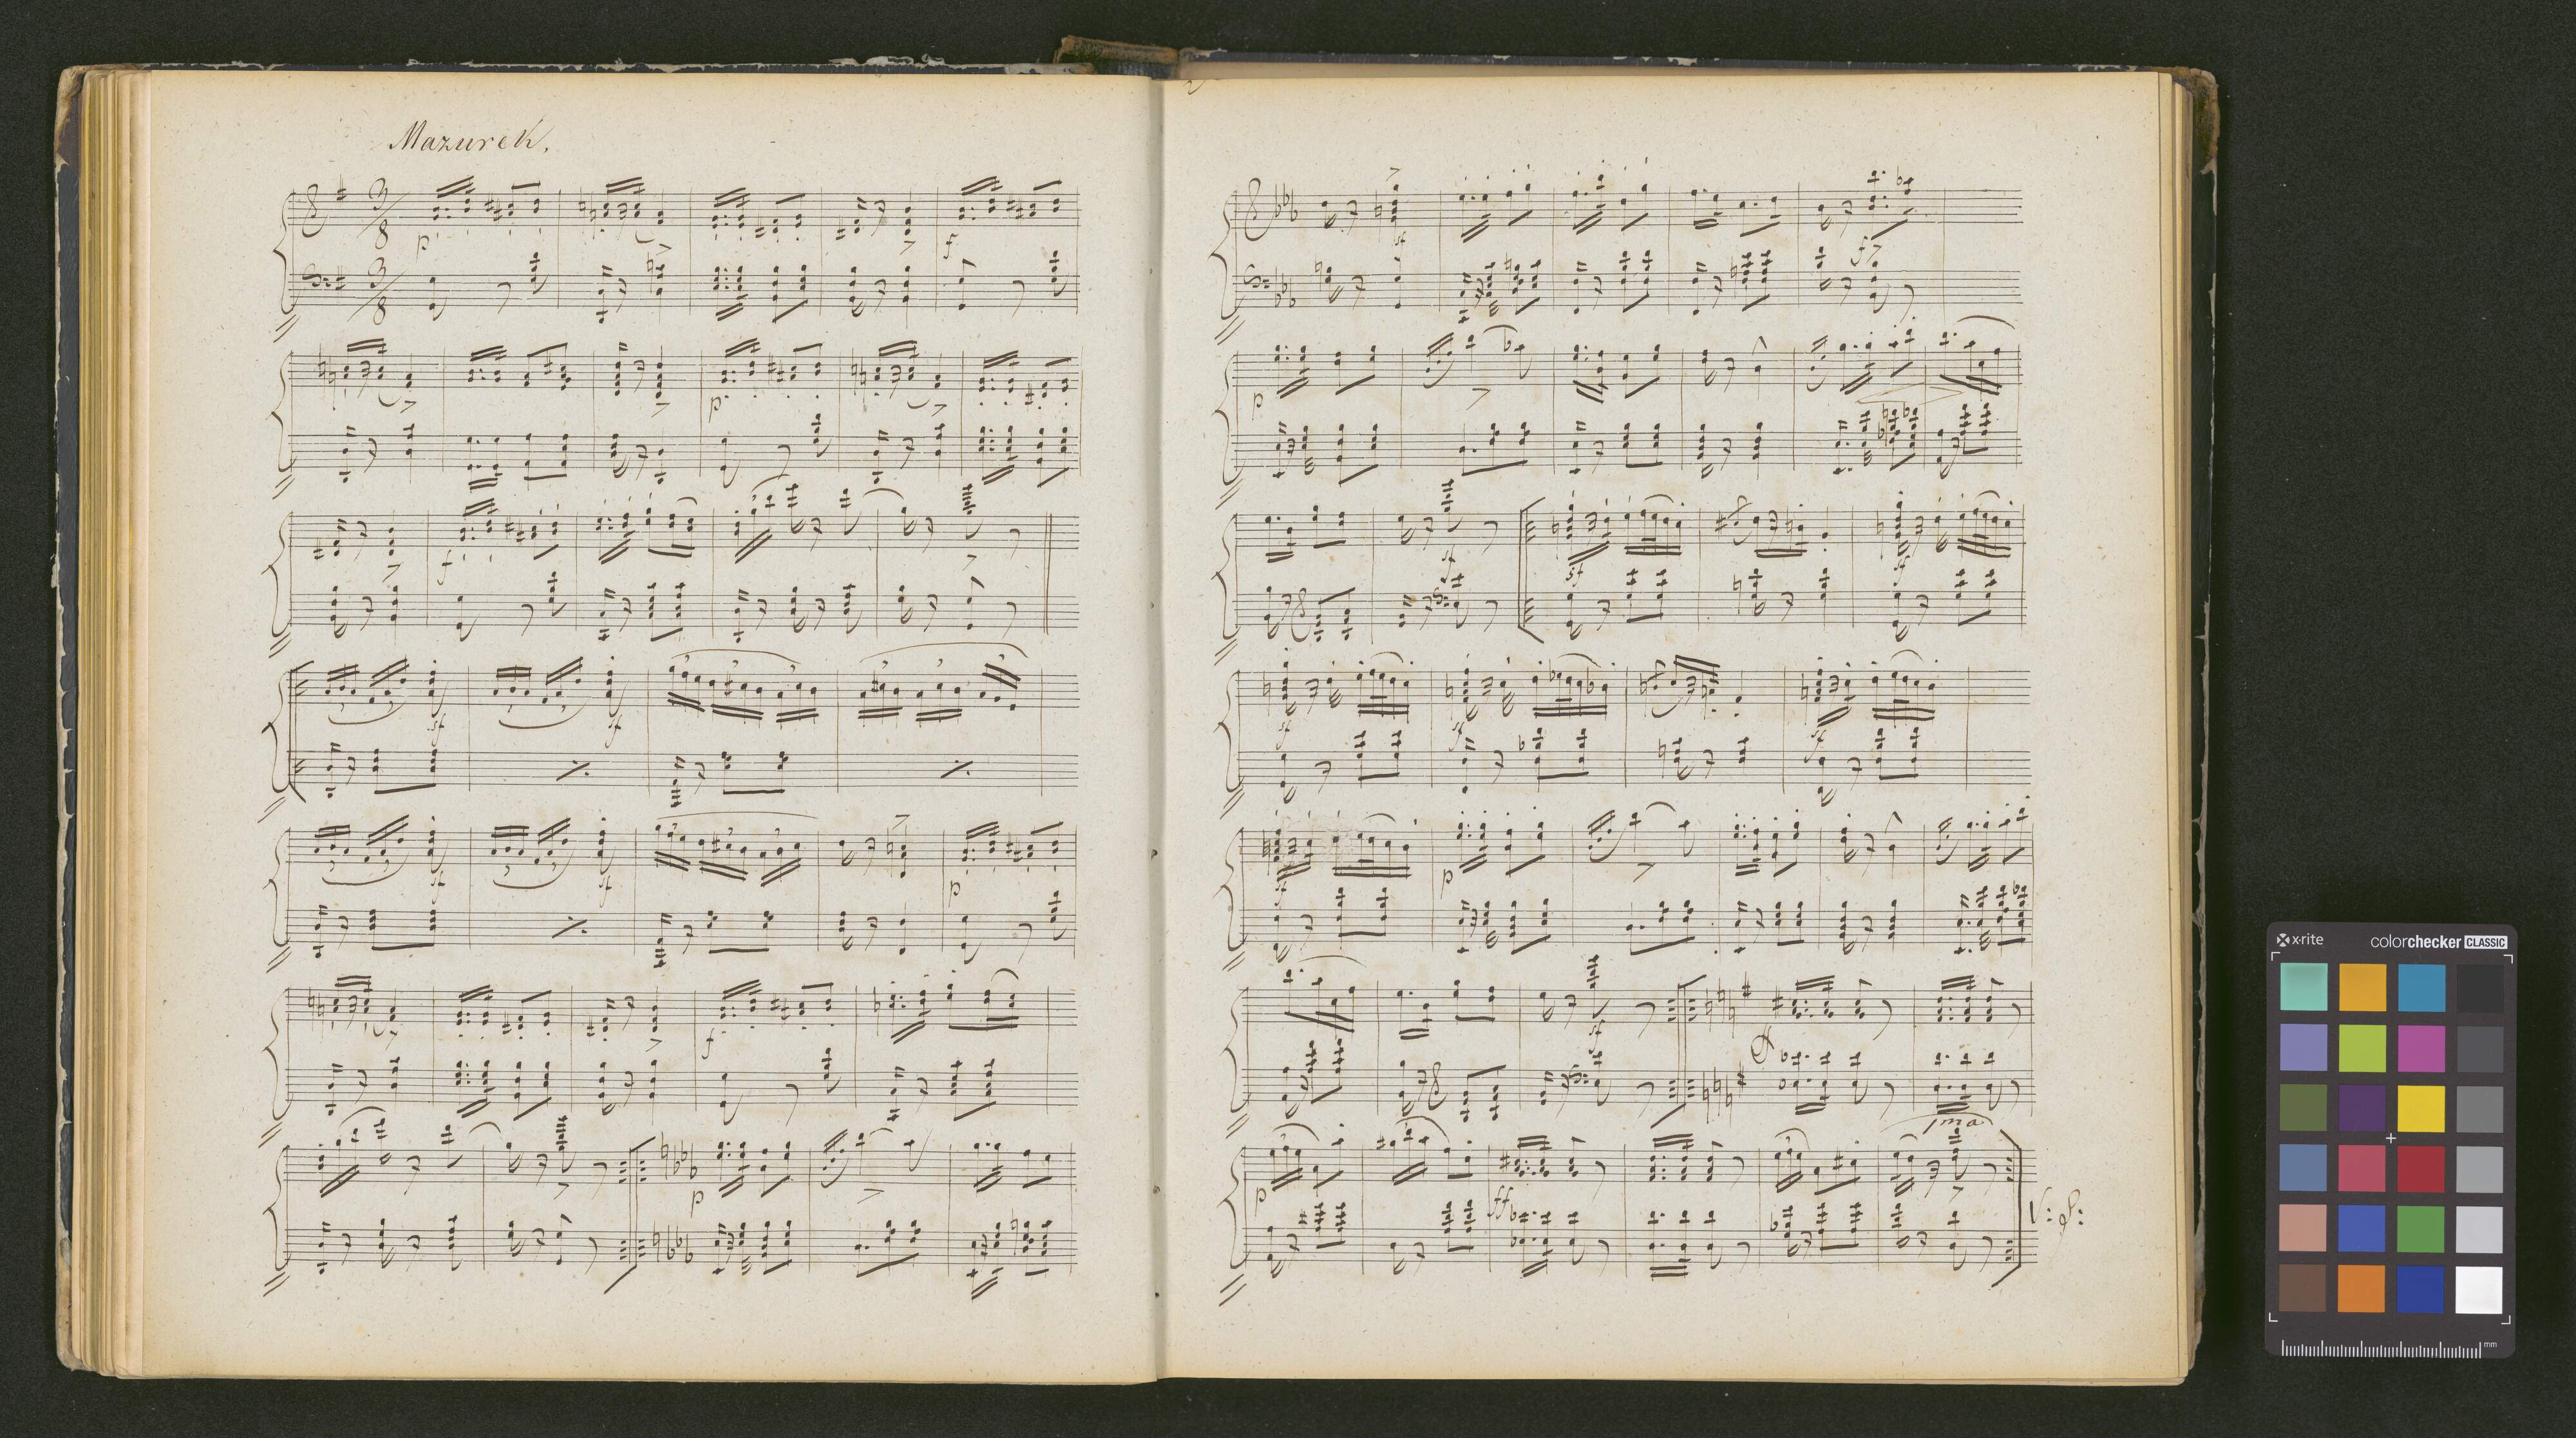 Mazurek.
3/8
p
f
3/8
p
f
sf
sf
sf
sf
p
f
p
2
sf
f
p
sf
sf
sf
sf
sf
sf
sf
p
sf
1ma
p
ff
V: S:
x-rite
colorchecker CLASSIC
mm